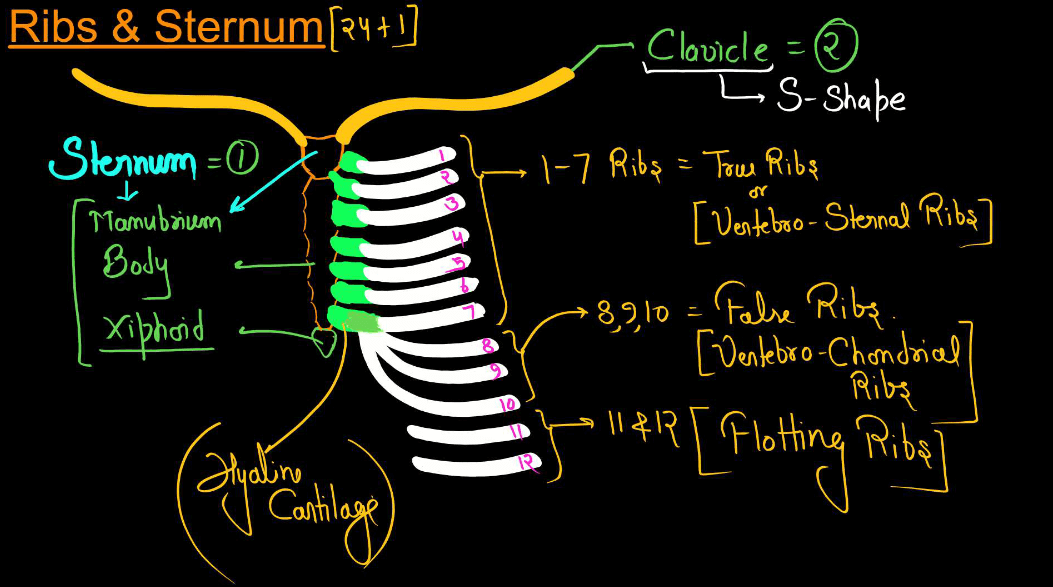 Ribs & Sternum [24+1]
Clavicle = 2
S-Shape
Sternum = 1
Manubrium
Body
Xiphoid
1
2
3
4
5
6
7
8
9
10
11
12
1-7 Ribs = True Ribs
or
[Vertebro-Sternal Ribs]
8,9,10 = False Ribs.
[Vertebro-Chondrial
Ribs]
11 & 12 [Flotting Ribs]
(Hyaline
Cartilage)